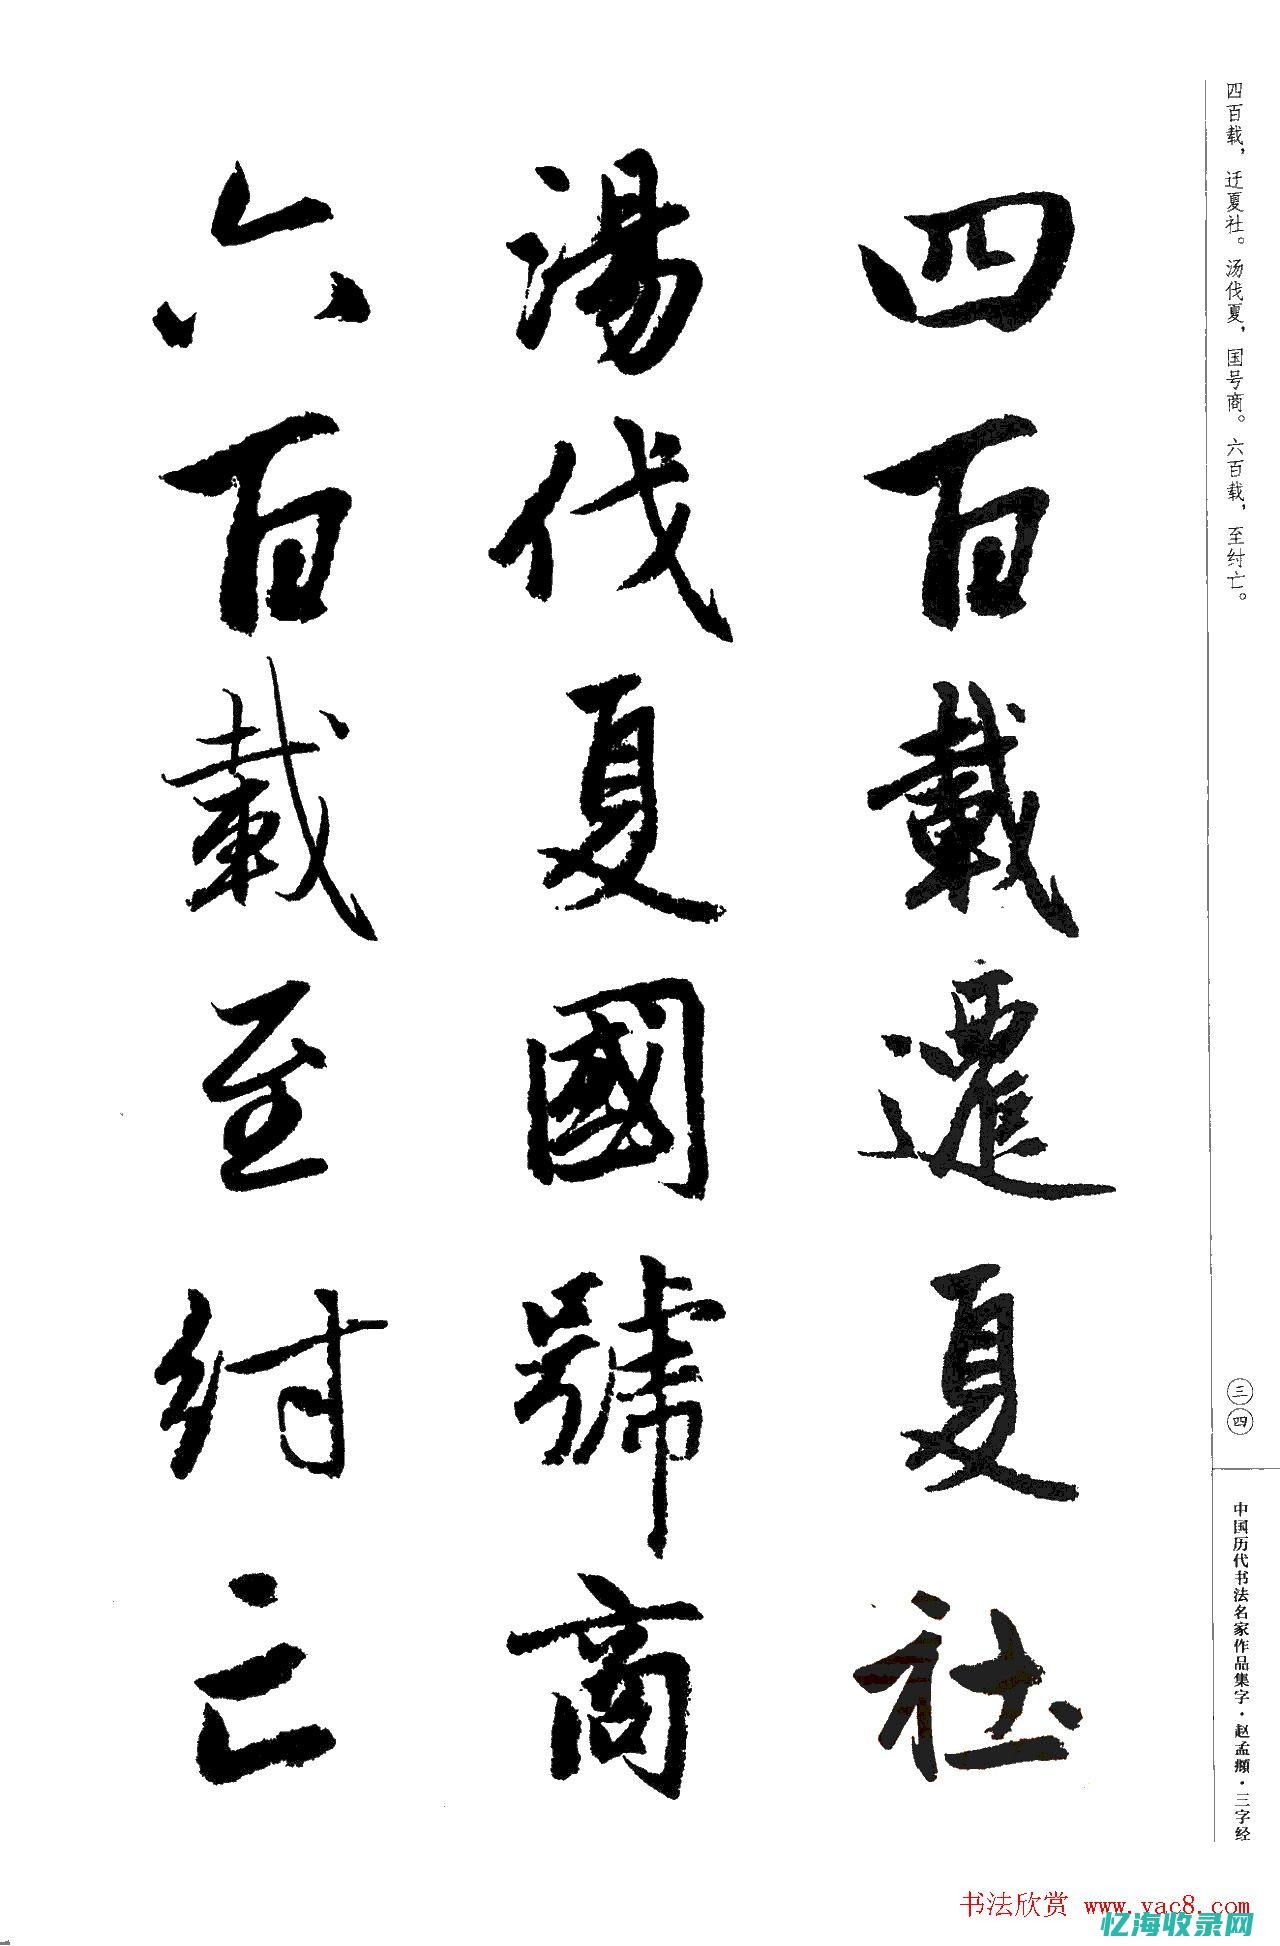 四百载，迁夏社。汤伐夏，国号商。六百载，至纣亡。
三四
中国历代书法名家作品集字·赵孟頫·三字经
四百載遷夏社
湯伐夏國號商
六百載至紂亡
书法欣赏 www.yac8.com
忆海收录网